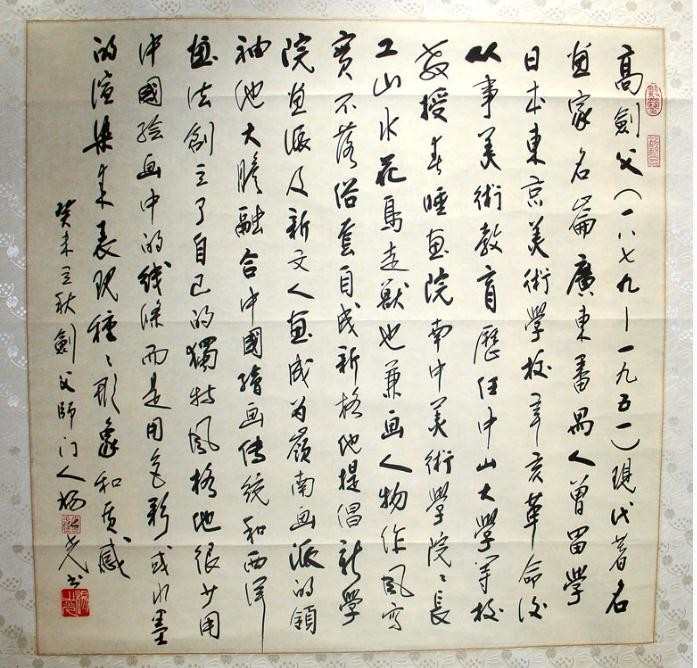 高劍父(一八七九—一九五一)現代著名
画家名崙廣東番禺人曾留學
日本東京美術學校辛亥革命後
从事美術教育歷任中山大學等校
教授春睡画院南中美術學院々長
工山水花鳥走獸也兼画人物作風寫
實不落俗套自成新格他提倡新學
院画派及新文人画成为嶺南画派的領
袖他大膽融合中國繪画傳統和西洋
画法創立了自己的獨特風格他很少用
中國绘画中的线條而是用色彩或水墨
的渲染来表現種々形象和质感
癸未立秋劍父師门人楊